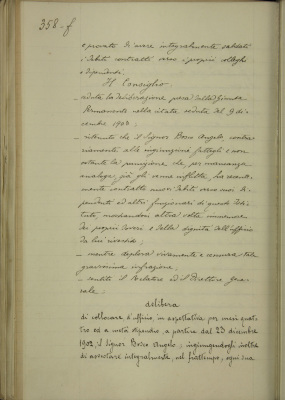 358-f
e provato di avere integralmente saldati
i debiti contratti verso i proprii colleghi
e dipendenti.
Il Consiglio
- veduta la deliberazione presa dalla Giunta
Permanente nella citata seduta del 9 di-
cembre 1902;
- ritenuto che il Signor Bosco Angelo contra-
riamente alle ingiunzioni fattegli e non
ostante la punizione che per mancanza
analoga già gli venne inflitta, ha nuova-
mente contratto nuovi debiti verso suoi di-
pendenti ed altri funzionari di questo Isti-
tuto, mostrandosi altra volta
dei proprii doveri e della dignità dell'ufficio
da lui rivestito;
- mentre deplora vivamente e censura tale
gravissima infrazione;
- sentiti il Relatore ed il Direttore Gene-
rale
delibera
di collocare, d'ufficio, in aspettativa per mesi quat-
tro ed a metà stipendio, a partire dal 23 dicembre
1902, il signor Bosco Angelo; ingiungendogli inoltre
di assestare integralmente, nel frattempo, ogni sua